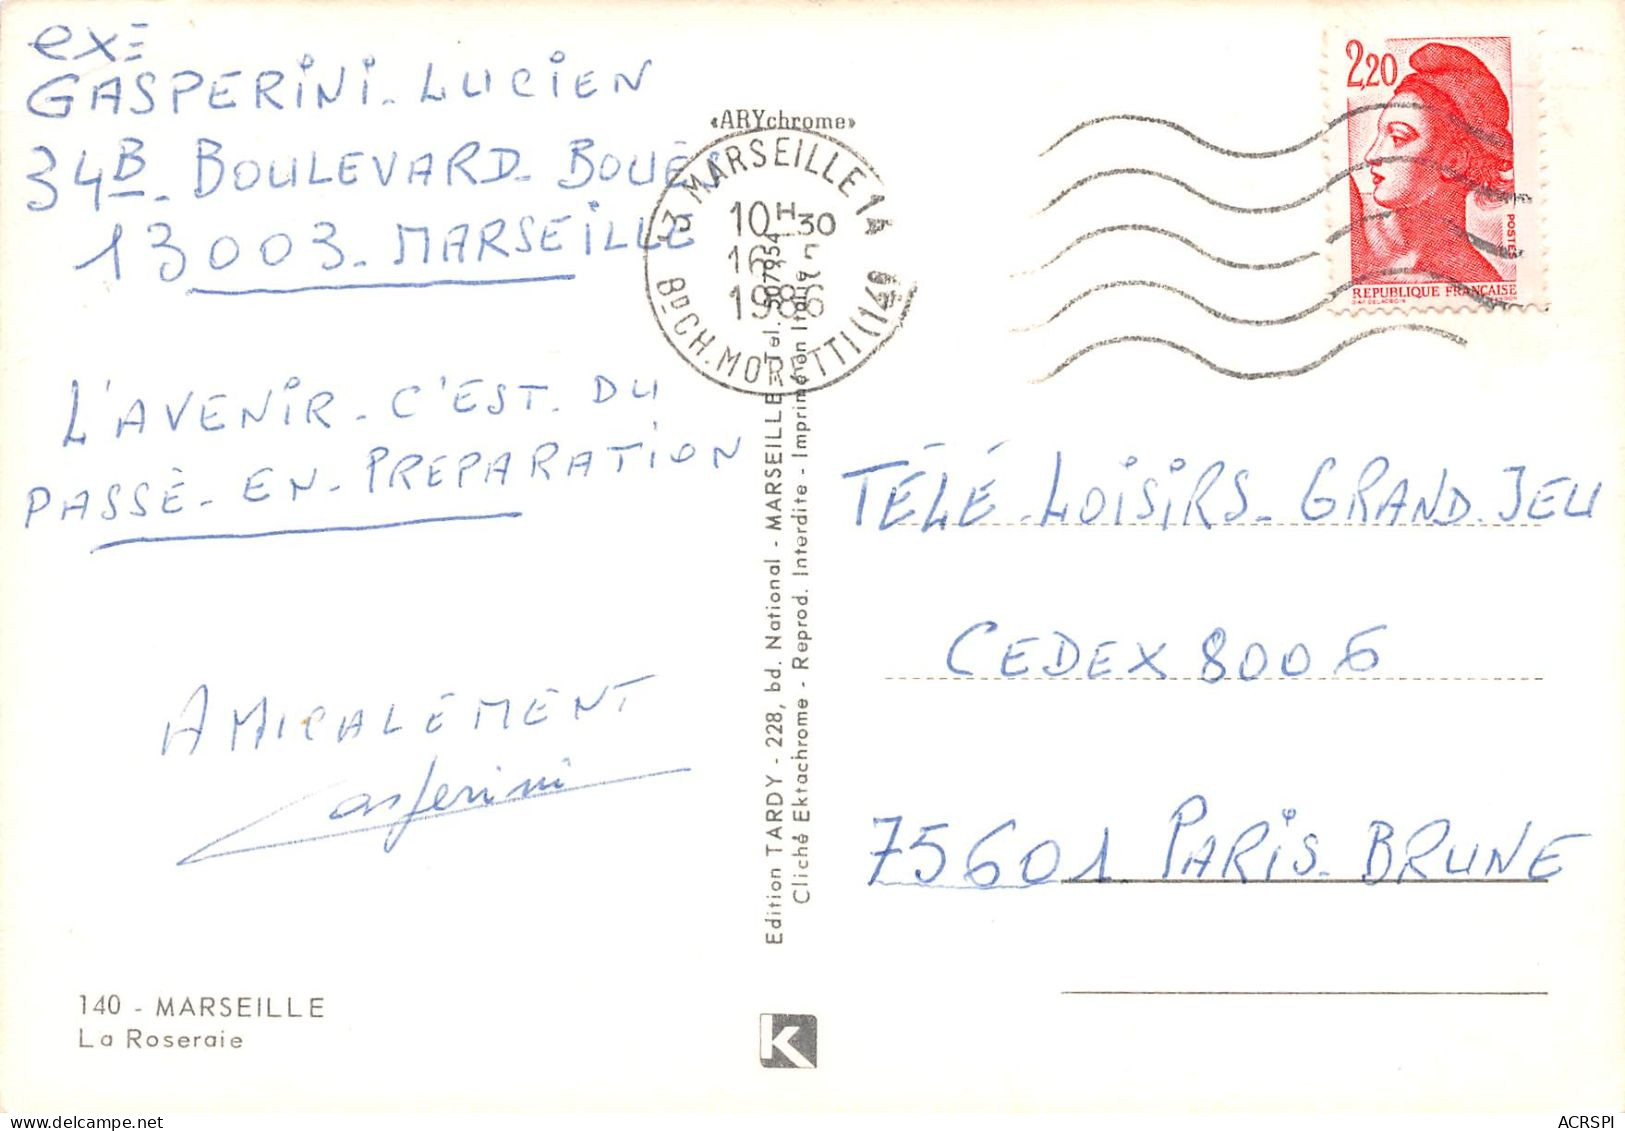 exᵉ
GASPERINI - LUCIEN
34B - BOULEVARD - BOUÈS
13003 - MARSEILLE
L'AVENIR - C'EST - DU
PASSÈ - EN - PREPARATION
AMICALEMENT
Gasperini
140 - MARSEILLE
La Roseraie
«ARYchrome»
13 MARSEILLE 14
10H30
1986
BD CH. MORETTI (14e)
Edition TARDY - 228, bd. National - MARSEILLE - Tel.
Cliché Ektachrome - Reprod. Interdite - Imprimé en Italie
K
2,20
POSTES
REPUBLIQUE FRANÇAISE
TÉLÉ - LOISIRS - GRAND - JEU
CEDEX 8006
75601 PARIS - BRUNE
ACRSPI